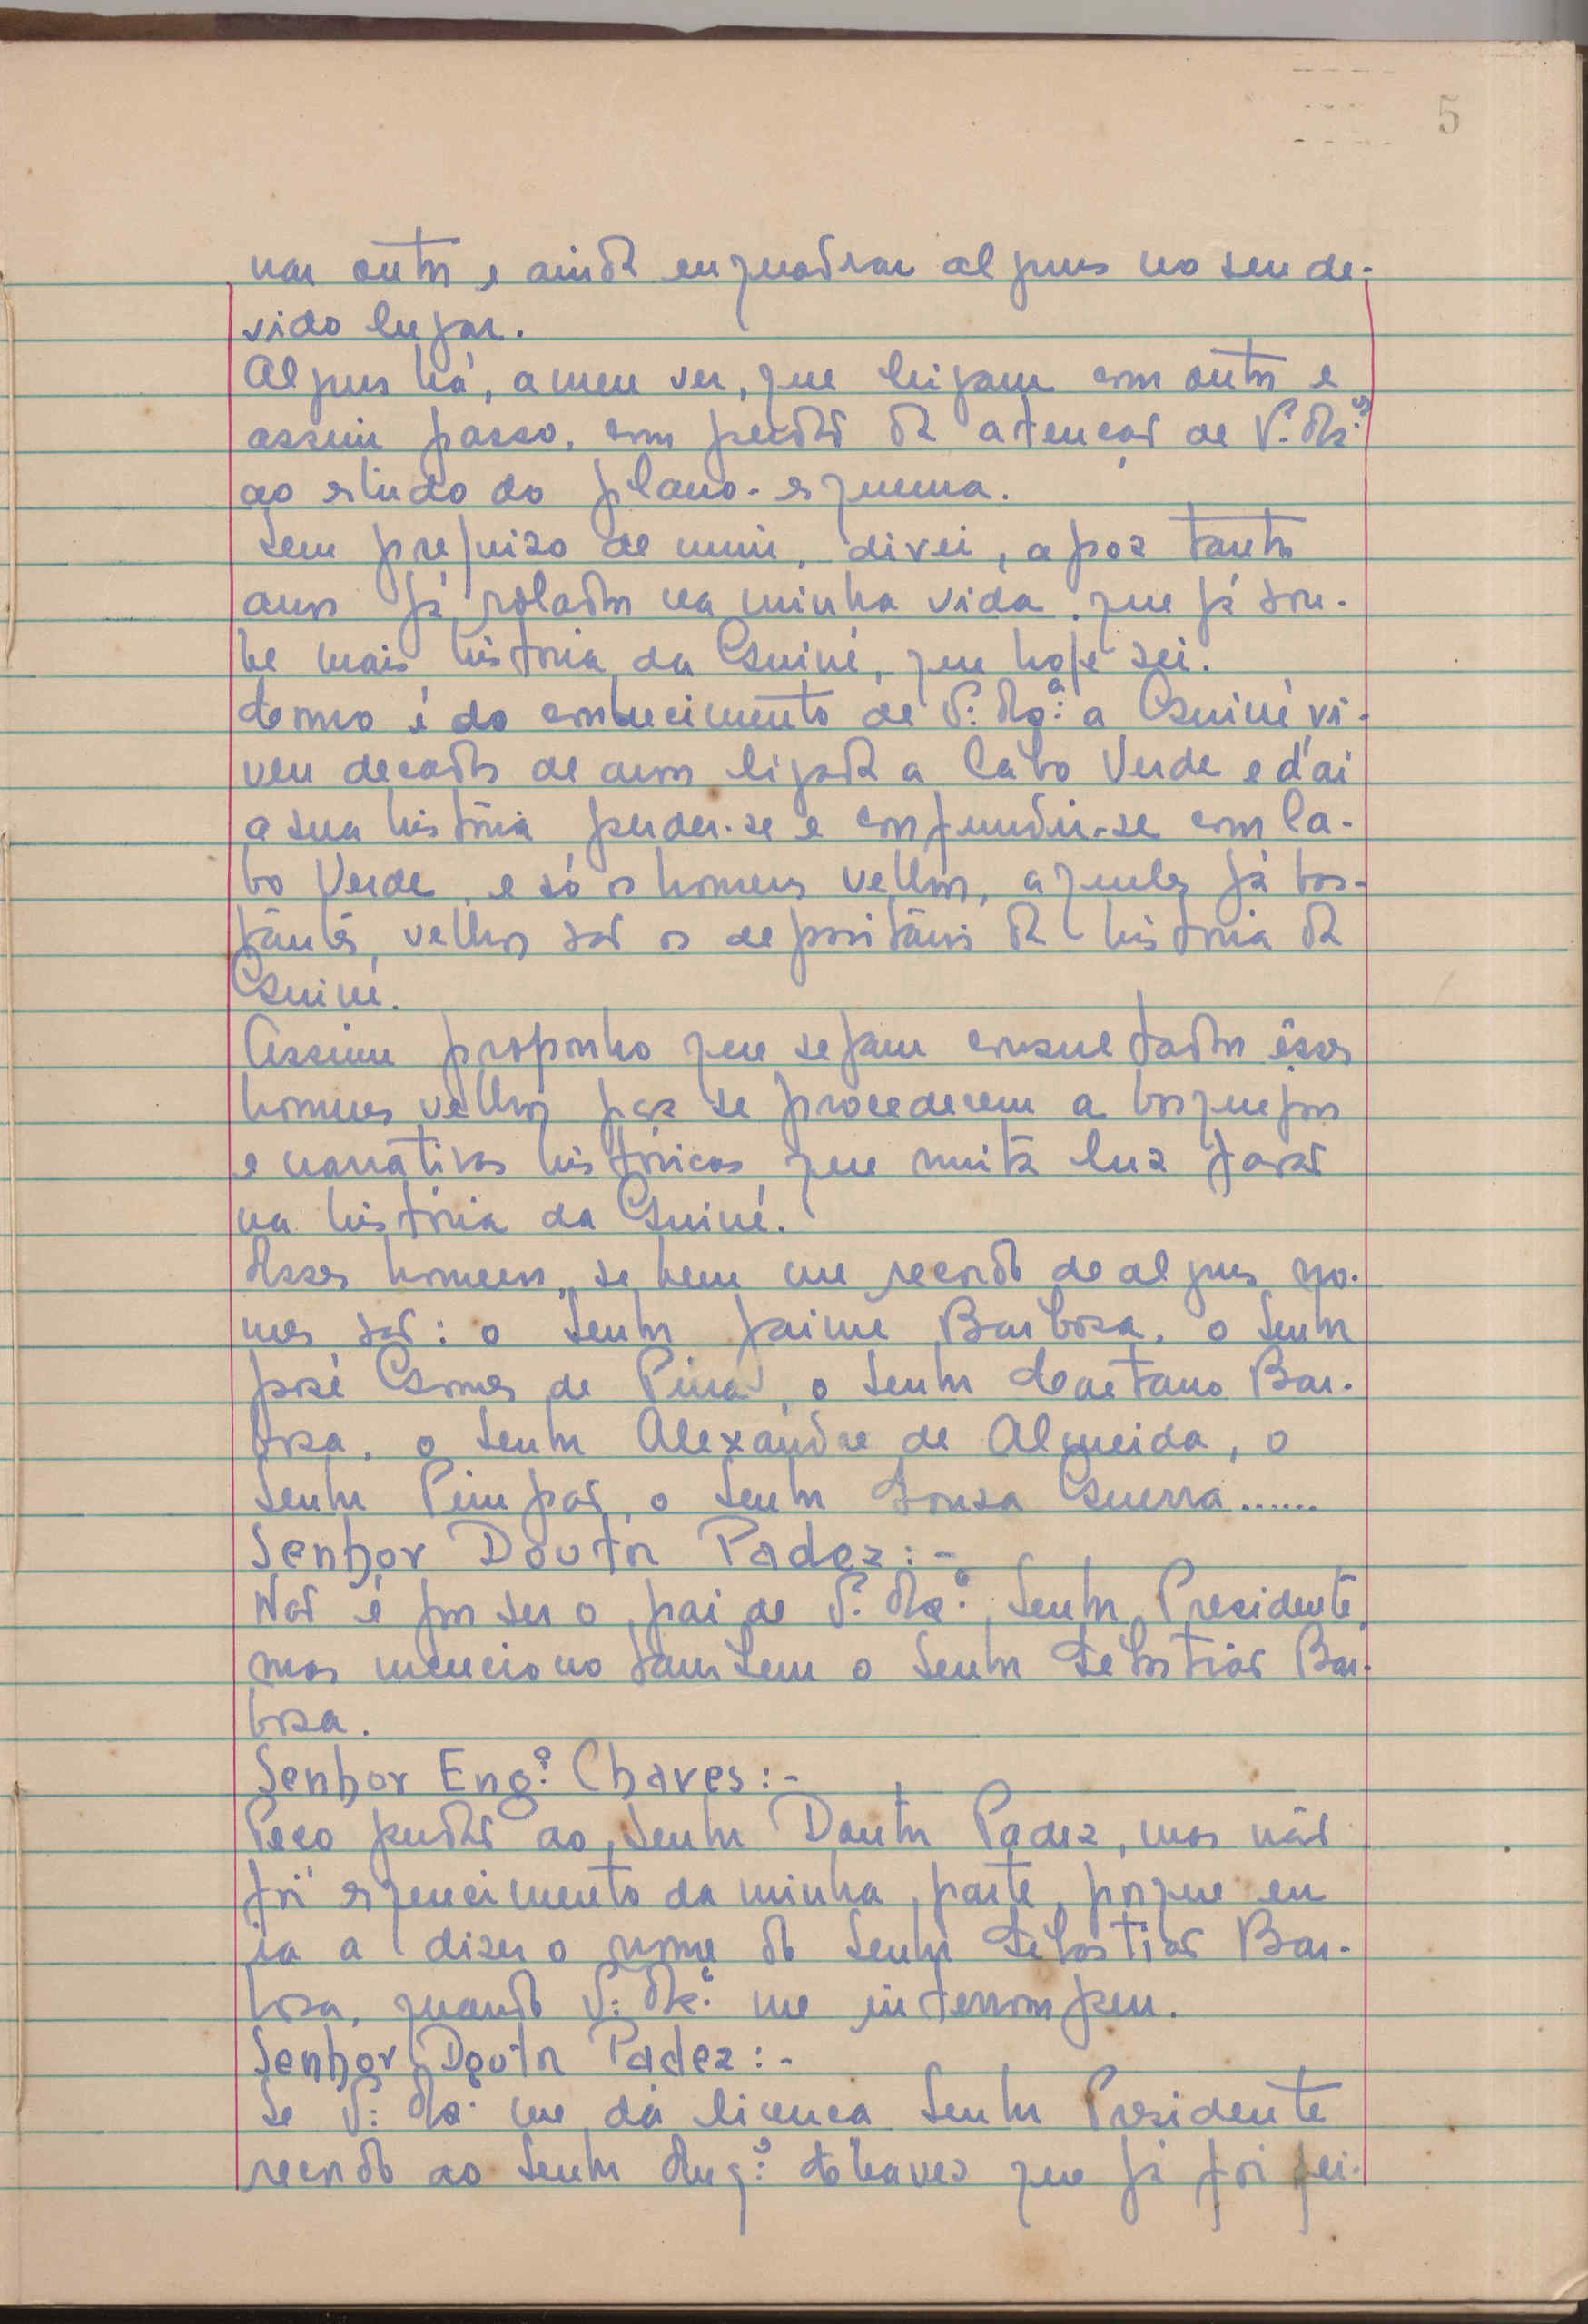 5
nar outros e ainda enquadrar alguns no seu de-
vido lugar.
Alguns há, a meu ver, que ligam com outros e
assim passo, com perdão da atenção de V. Ex.as
ao estudo do plano-esquema.
Sem prejuizo de mim, direi, apoz tantos
anos já rolados na minha vida, que já sou-
be mais história da Guiné, que hoje sei.
Como é do conhecimento de V. Ex.a a Guiné vi-
veu decadas de anos ligada a Cabo Verde e d'ai
a sua história perder-se e confundir-se com Ca-
bo Verde, e só os homens velhos, aqueles já bas-
tântes velhos são os depositários da história da
Guiné.
Assim proponho que sejam consultados êsses
homens velhos para se procederem a bosquejos
e narrativas históricas que muita luz farão
na história da Guiné.
Esses homens, se bem me recordo de alguns no-
mes são: o Senhor Jaime Barbosa, o Senhor
José Gomes de Pina, o Senhor Caetano Bar-
bosa, o Senhor Alexandre de Almeida, o
Senhor Pimpão, o Senhor Sousa Guerra......
Senhor Doutor Padez:-
Não é por ser o pai de V. Ex.a, Senhor Presidente,
mas menciono tambem o Senhor Sebastião Bar-
bosa.
Senhor Eng.o Chaves:-
Peço perdão ao Senhor Doutor Padez, mas não
foi esquecimento da minha parte, porque eu
ia a dizer o nome do Senhor Sebastião Bar-
bosa, quando V. Ex.a me interrompeu.
Senhor Doutor Padez:-
Se V. Ex.a me dá licença Senhor Presidente
recordo ao Senhor Eng.o Chaves que já foi fei-